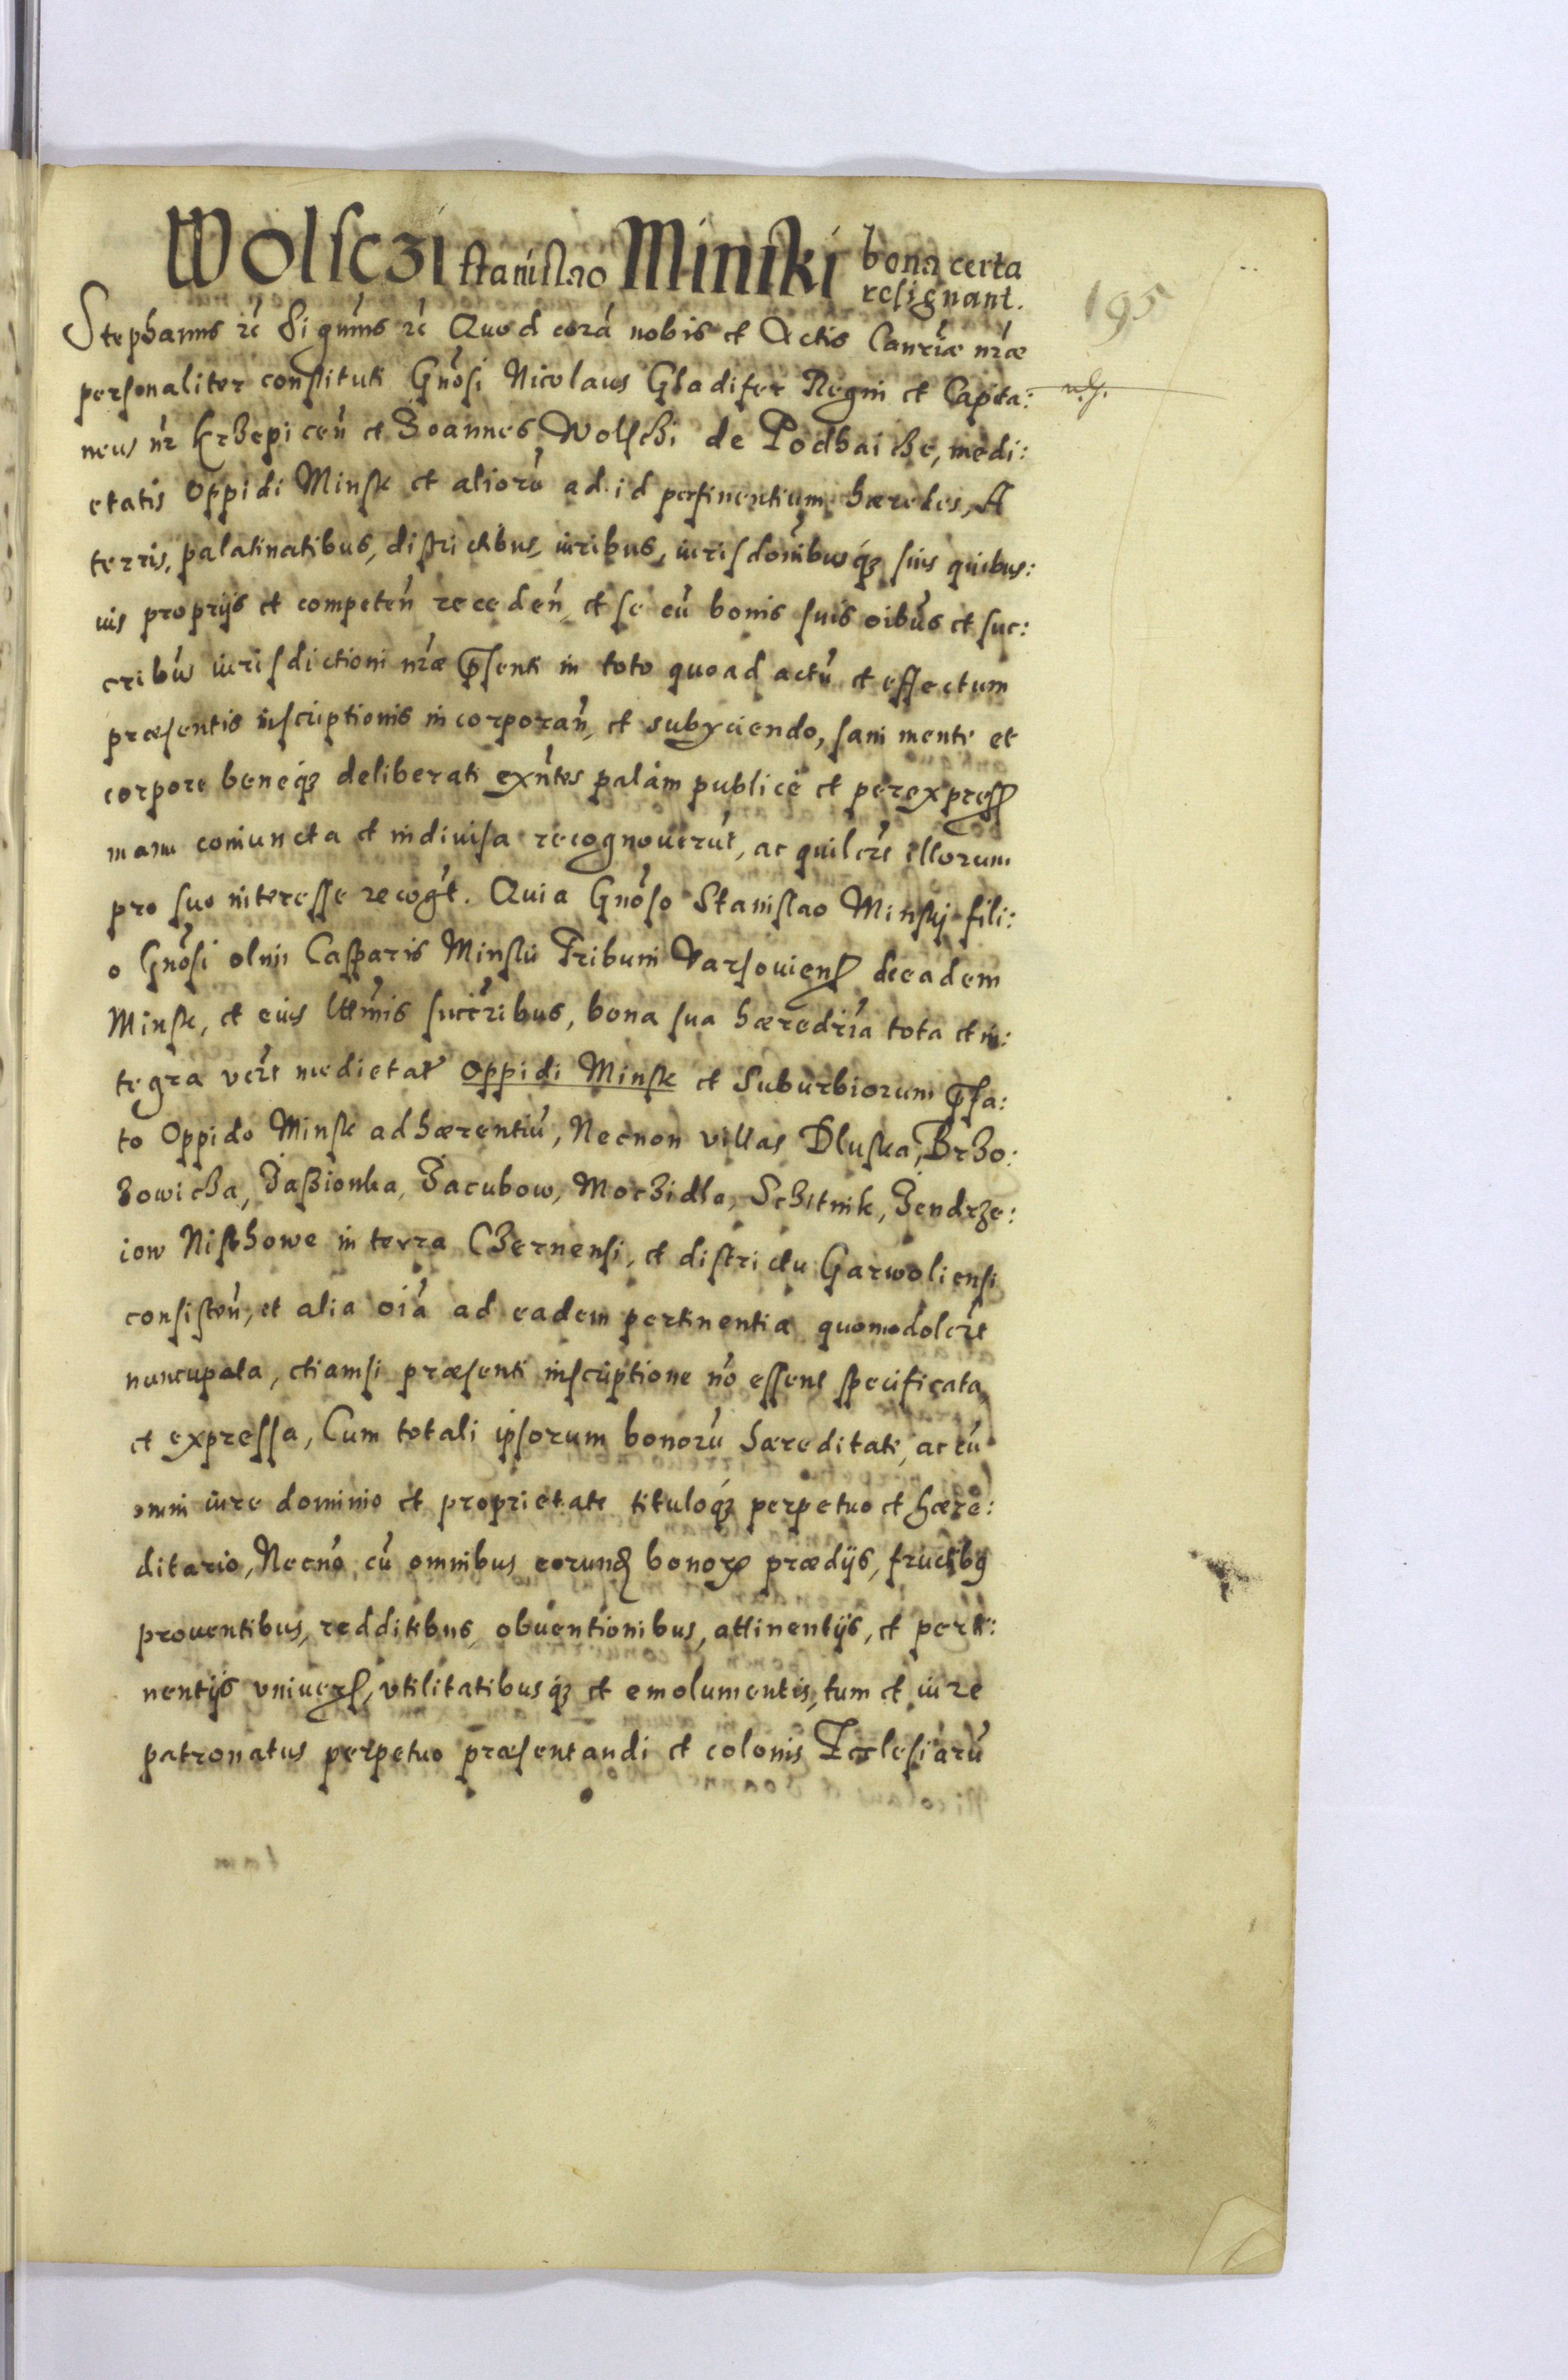 Wolsczi Stanislao Minski bona certa
resignant.
195
Stephanus rc̃ Significamus rc̃ Quod corã nobis et Actis Canriæ nr̃æ
personaliter constituti Gnõsi Nicolaus Gladifer Regni et Capita:
neus nr̃ Krzepiceñ et Joannes Wolschi de Podhaicze, medi:
etatis Oppidi Minsk et aliorũ ad id pertinentium hæredes, A
terris, palatinatibus, districtibus, iuribus, iurisdoñibusq3 suis quibus:
uis proprijs et competeñ recedeñ, et se cũ bonis suis oibus et suc:
cribus iurisdictioni nr̃æ p̃senti in toto quoad actũ et effectum
præsentis inscriptionis incorporañ, et subyciendo, sani mente et
corpore beneq3 deliberati exñtes palàm publicè et per expreß
manu coniuncta et indiuisa recognouerũt, ac quilcr̃t illorum
pro suo interesse recogt̃. Quia Gnõso Stanislao Minskj fili:
o Gnõsi olim Casparis Minskii Tribuni Varsouienß de eadem
Minsk, et eius lttm̃is succr̃ibus, bona sua hæredria tota et in:
tegra vcr̃t medietat̃ Oppidi Minsk et Suburbiorum p̃fa:
to Oppido Minsk adhærentiũ, Necnon villas Dluska, Brzo:
zowicza, Jaßionka, Jacubow, Moczidla, Sczitnik, Jendrze:
iow Nisthowe in terra Czernensi, et districtu Garwoliensi
consisteñ, et alia oiã ad eadem pertinentia quomodolcr̃t
nuncupata, etiamsi præsenti inscriptione nõ essent specificata
et expressa, Cum totali ipsorum bonorũ hæreditate, ac cũ
omni iure dominio et proprietate tituloq3 perpetuo et hære:
ditario, Necnõ cũ omnibus eorund bonor prædijs, fructib9
prouentibus, redditibus, obuentionibus, attinentijs, et perti:
nentijs vniuerß, vtilitatibusq3 et emolumentis, tum et iure
patronatus perpetuo præsentandi et colonis Ecclesiarũ